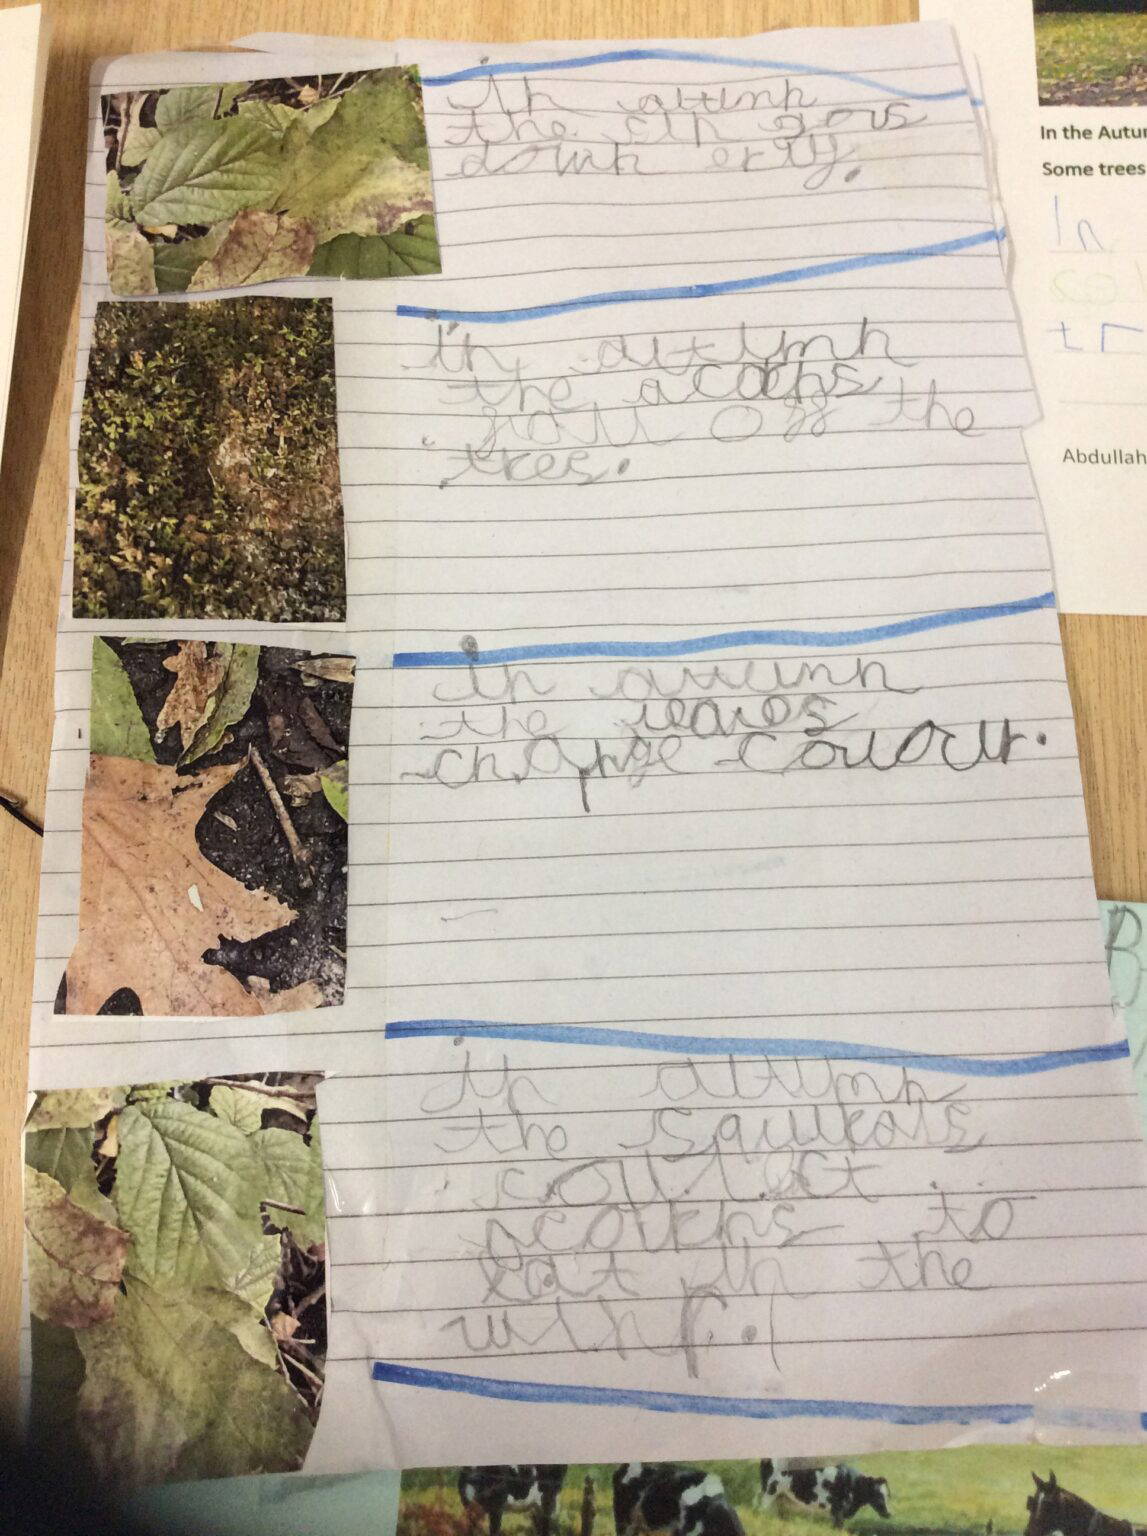 in autumn
the sun gous
down erly.
in autumn
the acorns
fall off the
trees.
in autumn
the leaves
change colour.
in autumn
the squirels
collect
acorns to
eat in the
In the Autu
Some trees
In
Abdullah
B